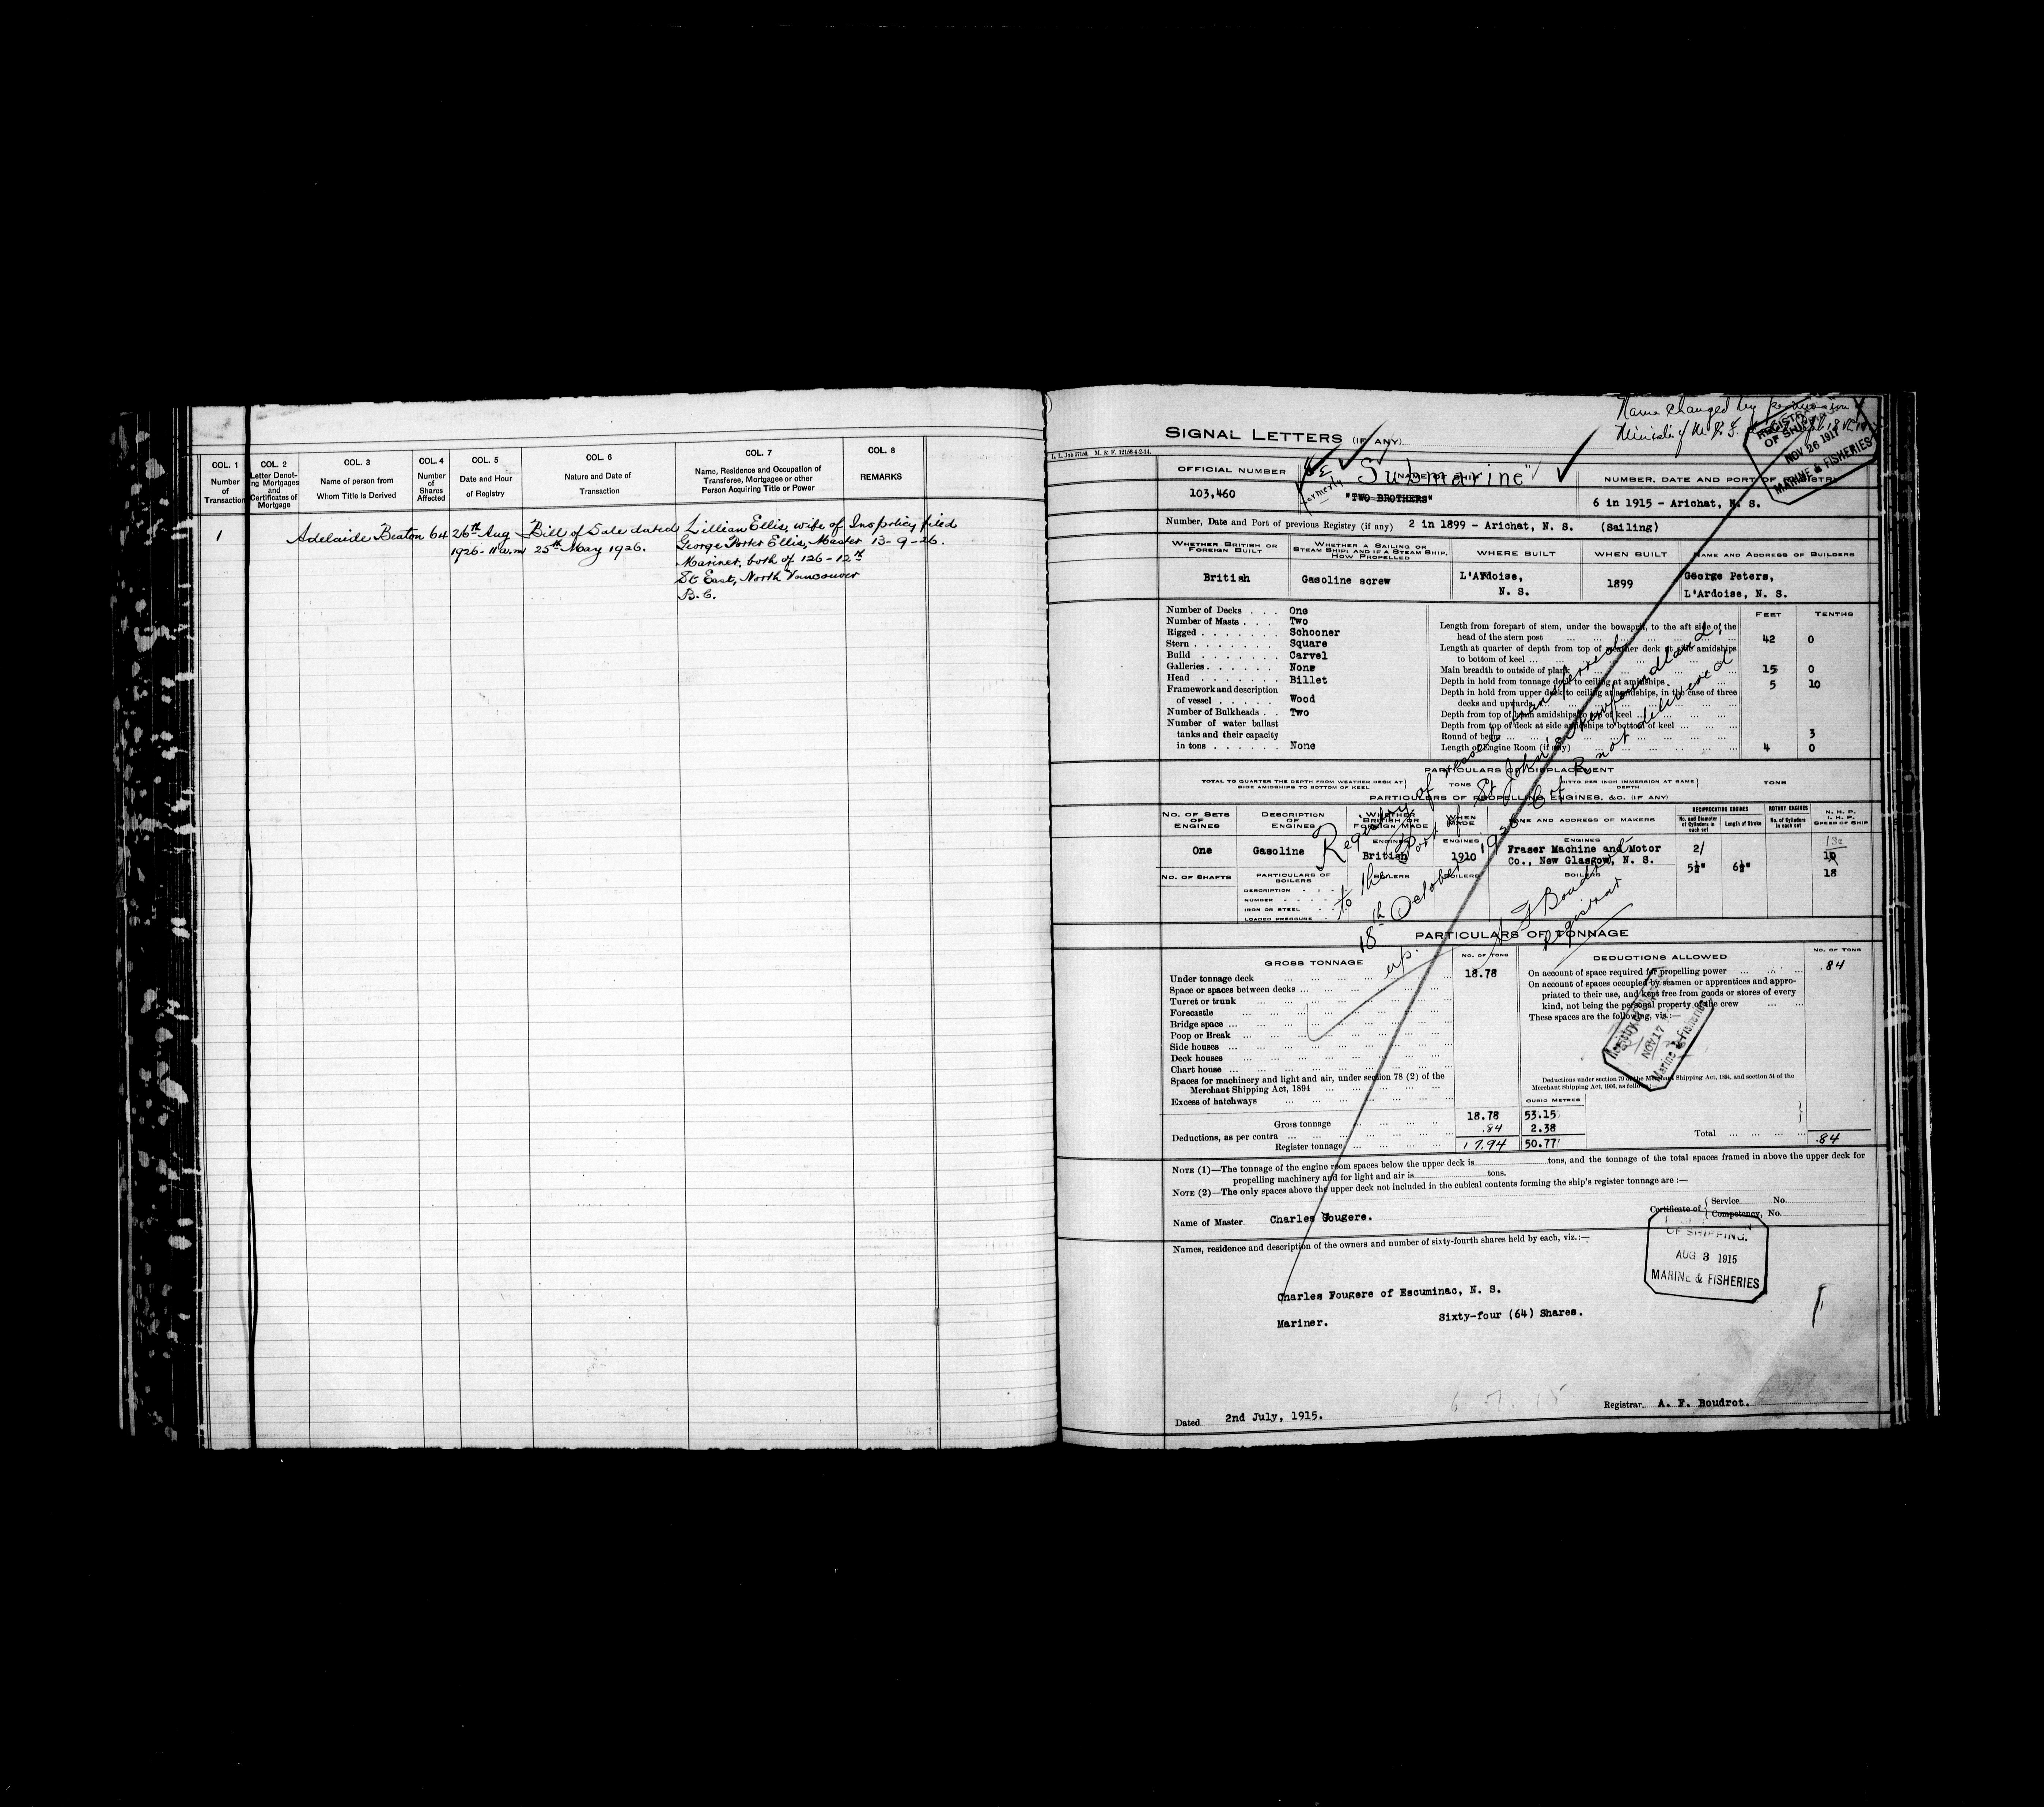 COL. 1
Number
of
Transaction
COL. 2
Letter Denot-
ing Mortgages
and
Certificates of
Mortgage
COL. 3
Name of person from
Whom Title is Derived
COL. 4
Number
of
Shares
Affected
COL. 5
Date and Hour
of Registry
COL. 6
Nature and Date of
Transaction
COL. 7
Name, Residence and Occupation of
Transferee, Mortgagee or other
Person Acquiring Title or Power
COL. 8
REMARKS
1 Adelaide Beaton 64 26th Aug Bill of Sale dated Lillian Ellis, wife of Ins policy filed
1926 - 11 a.m 25th May 1926. George Porter Ellis, Master 13-9-26.
Mariner, both of 126-12th
St East, North Vancouver
B.C.
Name changed by
Minister of M. & F.
REGISTRY
OF SHIPPING
NOV 26 1917
MARINE & FISHERIES
SIGNAL LETTERS (IF ANY)
L. I. Job 37150. M. & F. 12156 4-2-14.
OFFICIAL NUMBER
103,460
NAME OF SHIP
"Submarine"
formerly
"TWO BROTHERS"
NUMBER, DATE AND PORT OF REGISTRY
6 in 1915 - Arichat, N. S.
Number, Date and Port of previous Registry (if any) 2 in 1899 - Arichat, N. S. (Sailing)
WHETHER BRITISH OR
FOREIGN BUILT
British
WHETHER A SAILING OR
STEAM SHIP; AND IF A STEAM SHIP,
HOW PROPELLED
Gasoline screw
WHERE BUILT
L'Ardoise,
N. S.
WHEN BUILT
1899
NAME AND ADDRESS OF BUILDERS
George Peters,
L'Ardoise, N. S.
Number of Decks . . . One
Number of Masts . . . Two
Rigged . . . . . . . Schooner
Stern . . . . . . . . Square
Build . . . . . . . . Carvel
Galleries . . . . . . None
Head . . . . . . . Billet
Framework and description
of vessel . . . . . . Wood
Number of Bulkheads . . Two
Number of water ballast
tanks and their capacity
in tons . . . . . . . None
FEET TENTHS
Length from forepart of stem, under the bowsprit, to the aft side of the
head of the stern post 42 0
Length at quarter of depth from top of weather deck at side amidships
to bottom of keel
Main breadth to outside of plank 15 0
Depth in hold from tonnage deck to ceiling at amidships 5 10
Depth in hold from upper deck to ceiling at amidships, in the case of three
decks and upwards
Depth from top of beam amidships to top of keel
Depth from top of deck at side amidships to bottom of keel
Round of beam 3
Length of Engine Room (if any) 4 0
Registry of vessel transferred
to the Port of St. John's Newfoundland,
18th October 1926 C of R not delivered
up.
A F Boudrot
Registrar
PARTICULARS OF DISPLACEMENT
TOTAL TO QUARTER THE DEPTH FROM WEATHER DECK AT
SIDE AMIDSHIPS TO BOTTOM OF KEEL
TONS
DITTO PER INCH IMMERSION AT SAME
DEPTH
TONS
PARTICULARS OF PROPELLING ENGINES, &C. (IF ANY)
NO. OF SETS
OF
ENGINES
DESCRIPTION
OF
ENGINES
WHETHER
BRITISH OR
FOREIGN MADE
WHEN
MADE
NAME AND ADDRESS OF MAKERS
RECIPROCATING ENGINES
No. and Diameter
of Cylinders in
each set
Length of Stroke
ROTARY ENGINES
No. of Cylinders
in each set
N. H. P.
I. H. P.
SPEED OF SHIP
One
Gasoline
ENGINES
British
ENGINES
1910
ENGINES
Fraser Machine and Motor
Co., New Glasgow, N. S.
2/
5½"
6½"
10
18
NO. OF SHAFTS
PARTICULARS OF
BOILERS
DESCRIPTION
NUMBER
IRON OR STEEL
LOADED PRESSURE
BOILERS
BOILERS
BOILERS
PARTICULARS OF TONNAGE
GROSS TONNAGE
NO. OF TONS
Under tonnage deck 18.78
Space or spaces between decks
Turret or trunk
Forecastle
Bridge space
Poop or Break
Side houses
Deck houses
Chart house
Spaces for machinery and light and air, under section 78 (2) of the
Merchant Shipping Act, 1894
Excess of hatchways
Gross tonnage 18.78 53.15
Deductions, as per contra .84 2.38
Register tonnage 17.94 50.77
CUBIC METRES
DEDUCTIONS ALLOWED
NO. OF TONS
On account of space required for propelling power .84
On account of spaces occupied by seamen or apprentices and appro-
priated to their use, and kept free from goods or stores of every
kind, not being the personal property of the crew
These spaces are the following, viz.:—
NOV 17
Marine & Fisheries
Deductions under section 79 of the Merchant Shipping Act, 1894, and section 54 of the
Merchant Shipping Act, 1906, as follows
Total .84
NOTE (1)—The tonnage of the engine room spaces below the upper deck is tons, and the tonnage of the total spaces framed in above the upper deck for
propelling machinery and for light and air is tons.
NOTE (2)—The only spaces above the upper deck not included in the cubical contents forming the ship's register tonnage are :—
Name of Master Charles Fougere.
Certificate of Service No.
Competency, No.
Names, residence and description of the owners and number of sixty-fourth shares held by each, viz.:—
OF SHIPPING.
AUG 3 1915
MARINE & FISHERIES
Charles Fougere of Escuminac, N. S.
Mariner. Sixty-four (64) Shares.
6. 7. 15
Dated 2nd July, 1915.
Registrar A. F. Boudrot.